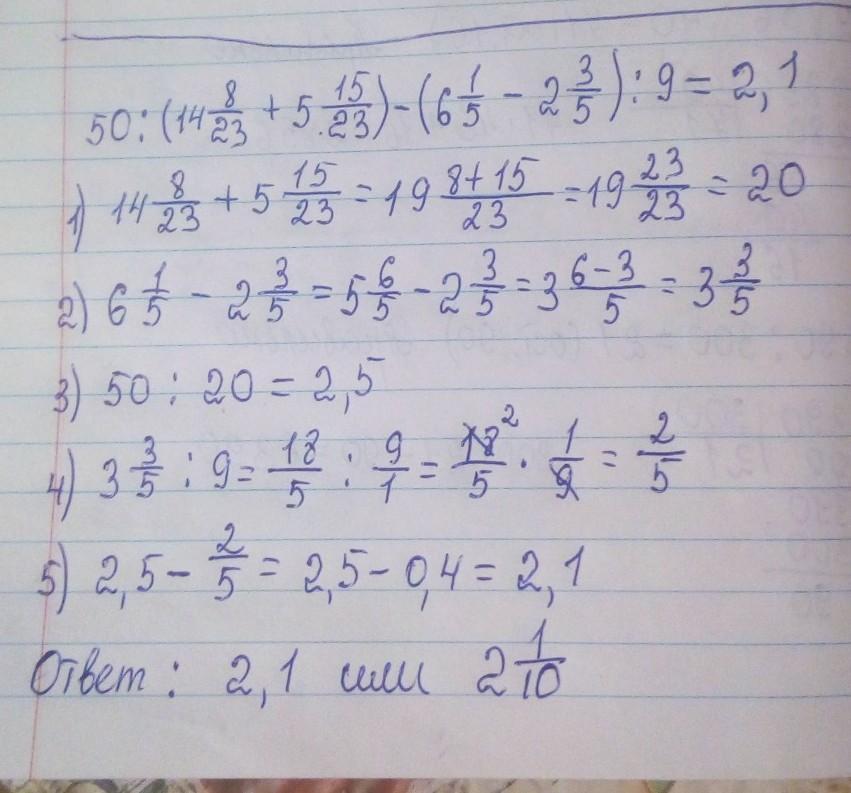 50 : (14 8/23 + 5 15/23) - (6 1/5 - 2 3/5) : 9 = 2,1
1) 14 8/23 + 5 15/23 = 19 8+15/23 = 19 23/23 = 20
2) 6 1/5 - 2 3/5 = 5 6/5 - 2 3/5 = 3 6-3/5 = 3 3/5
3) 50 : 20 = 2,5
4) 3 3/5 : 9 = 18/5 : 9/1 = 18 2/5 · 1/9 = 2/5
5) 2,5 - 2/5 = 2,5 - 0,4 = 2,1
Ответ : 2,1 или 2 1/10